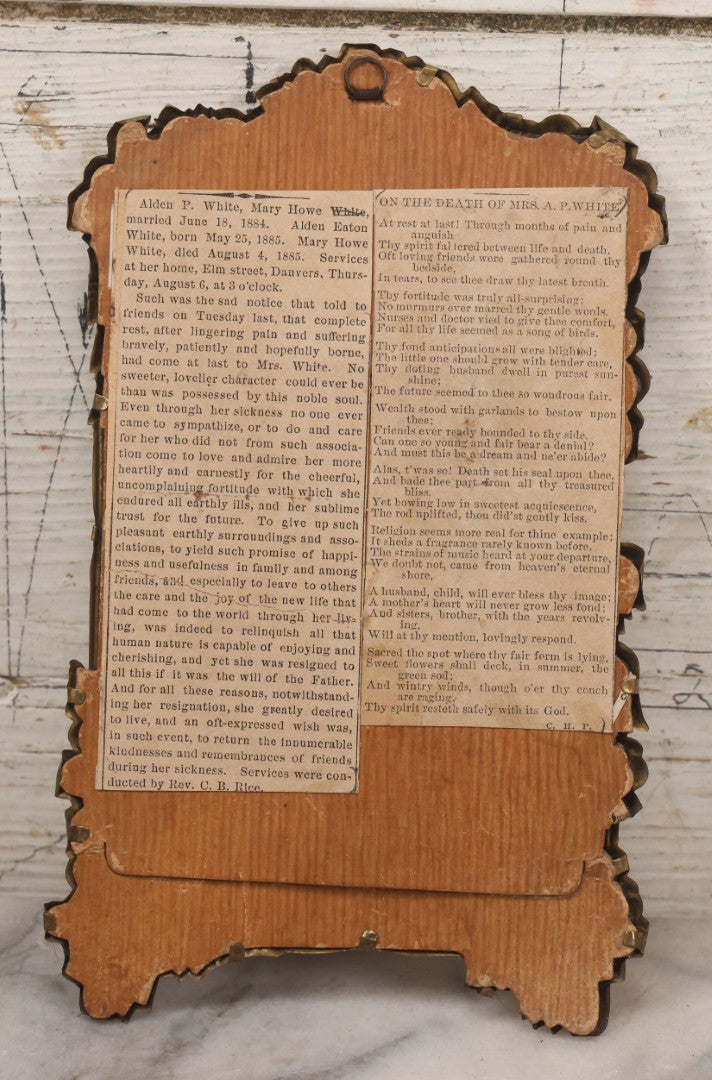 Alden P. White, Mary Howe White,
married June 18, 1884. Alden Eaton
White, born May 25, 1885. Mary Howe
White, died August 4, 1885. Services
at her home, Elm street, Danvers, Thurs-
day, August 6, at 3 o'clock.
Such was the sad notice that told to
friends on Tuesday last, that complete
rest, after lingering pain and suffering
bravely, patiently and hopefully borne,
had come at last to Mrs. White. No
sweeter, lovelier character could ever be
than was possessed by this noble soul.
Even through her sickness no one ever
came to sympathize, or to do and care
for her who did not from such associa-
tion come to love and admire her more
heartily and earnestly for the cheerful,
uncomplaining fortitude with which she
endured all earthly ills, and her sublime
trust for the future. To give up such
pleasant earthly surroundings and asso-
ciations, to yield such promise of happi-
ness and usefulness in family and among
friends, and especially to leave to others
the care and the joy of the new life that
had come to the world through her liv-
ing, was indeed to relinquish all that
human nature is capable of enjoying and
cherishing, and yet she was resigned to
all this if it was the will of the Father.
And for all these reasons, notwithstand-
ing her resignation, she greatly desired
to live, and an oft-expressed wish was,
in such event, to return the innumerable
kindnesses and remembrances of friends
during her sickness. Services were con-
ducted by Rev. C. B. Rice.
ON THE DEATH OF MRS. A. P. WHITE.
At rest at last! Through months of pain and
anguish
Thy spirit faltered between life and death.
Oft loving friends were gathered round thy
bedside,
In tears, to see thee draw thy latest breath.
Thy fortitude was truly all-surprising;
No murmurs ever marred thy gentle words.
Nurses and doctor vied to give thee comfort,
For all thy life seemed as a song of birds.
Thy fond anticipations all were blighted;
The little one should grow with tender care,
Thy doting husband dwell in purest sun-
shine;
The future seemed to thee so wondrous fair.
Wealth stood with garlands to bestow upon
thee;
Friends ever ready bounded to thy side.
Can one so young and fair bear a denial?
And must this be a dream and ne'er abide?
Alas, t'was so! Death set his seal upon thee,
And bade thee part from all thy treasured
bliss.
Yet bowing low in sweetest acquiescence,
The rod uplifted, thou did'st gently kiss.
Religion seems more real for thine example;
It sheds a fragrance rarely known before,
The strains of music heard at your departure,
We doubt not, came from heaven's eternal
shore.
A husband, child, will ever bless thy image;
A mother's heart will never grow less fond;
And sisters, brother, with the years revolv-
ing,
Will at thy mention, lovingly respond.
Sacred the spot where thy fair form is lying,
Sweet flowers shall deck, in summer, the
green sod;
And wintry winds, though o'er thy couch
are raging,
Thy spirit resteth safely with its God.
C. H. P.